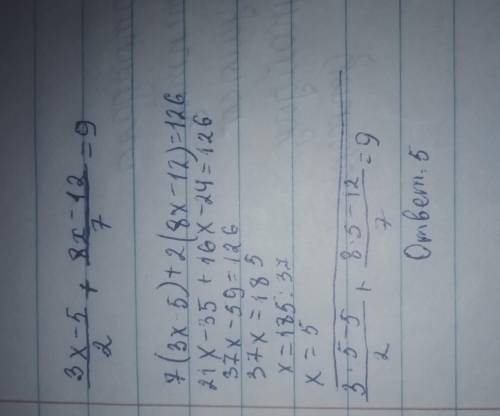 3x-5/2 + 8x-12/7 = 9
7(3x-5)+2(8x-12)=126
21x-35+16x-24=126
37x-59=126
37x=185
x=185:37
x=5
3·5-5/2 + 8·5-12/7 = 9
Ответ: 5